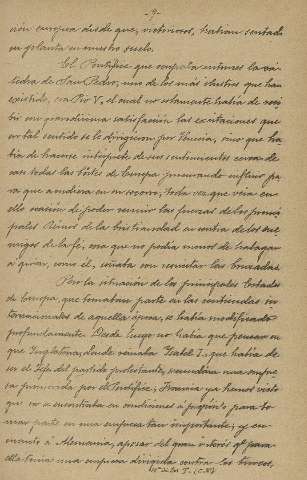 -9-
ción europea desde que, victoriosos, habían sentado
su planta en nuestro suelo.
El Pontífice que ocupaba entonces la cá-
tedra de San Pedro, uno de los más ilustres que han
existido, era Pio V, el cual no solamente había de reci
bir con grandísima satisfacción las excitaciones que
en tal sentido se le dirigieron por Venecia, sino que ha
bía de hacerse intérprete de sus sentimientos cerca de
casi todas las Cortes de Europa procurando influir pa
ra que acudiera en su socorro, toda vez que veía en
ello ocasión de poder reunir las fuerzas de los princi
pales Reinos de la Cristiandad en contra de los ene
migos de la fé, cosa que no podía menos de halagar
á quien, como él, soñaba con resucitar las Cruzadas.
Por la situación de los principales Estados
de Europa, que tomaban parte en las contiendas in
ternacionales de aquella época, se había modificado
profundamente. Desde luego no había que pensar en
que Inglaterra, donde reinaba Isabel I, que había de
ser el Jefe del partido protestante, secundara una empre
sa patrocinada por el Pontífice; Francia ya hemos visto
que no se encontraba en condiciones á propósito para to
mar parte en una empresa tan importante; y en
cuanto á Alemania, apesar del gran interés qe. para
ella tenía una empresa dirigida contra los turcos,